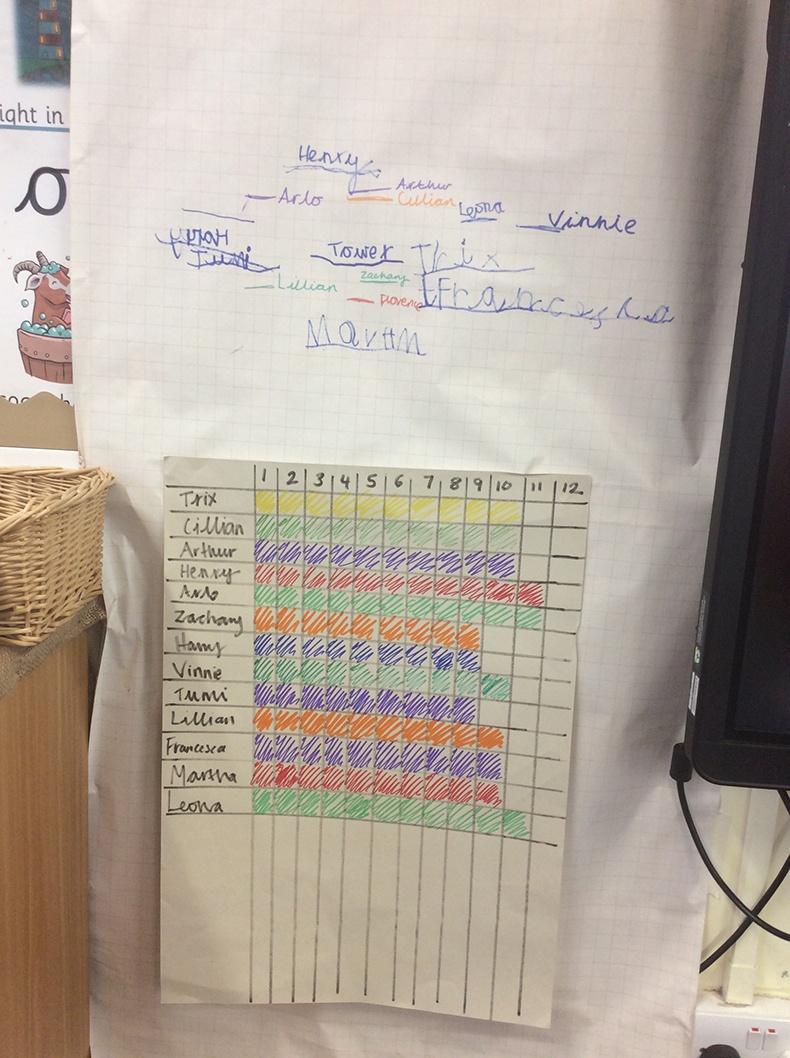 ight in
Henry
Arlo
Arthur
Cillian
Leona
Vinnie
Tumi
Tower
Trix
Lillian
Zachary
florence
1 2 3 4 5 6 7 8 9 10 11 12
Trix
Cillian
Arthur
Henry
Arlo
Zachary
Harry
Vinnie
Tumi
Lillian
Francesca
Martha
Leona